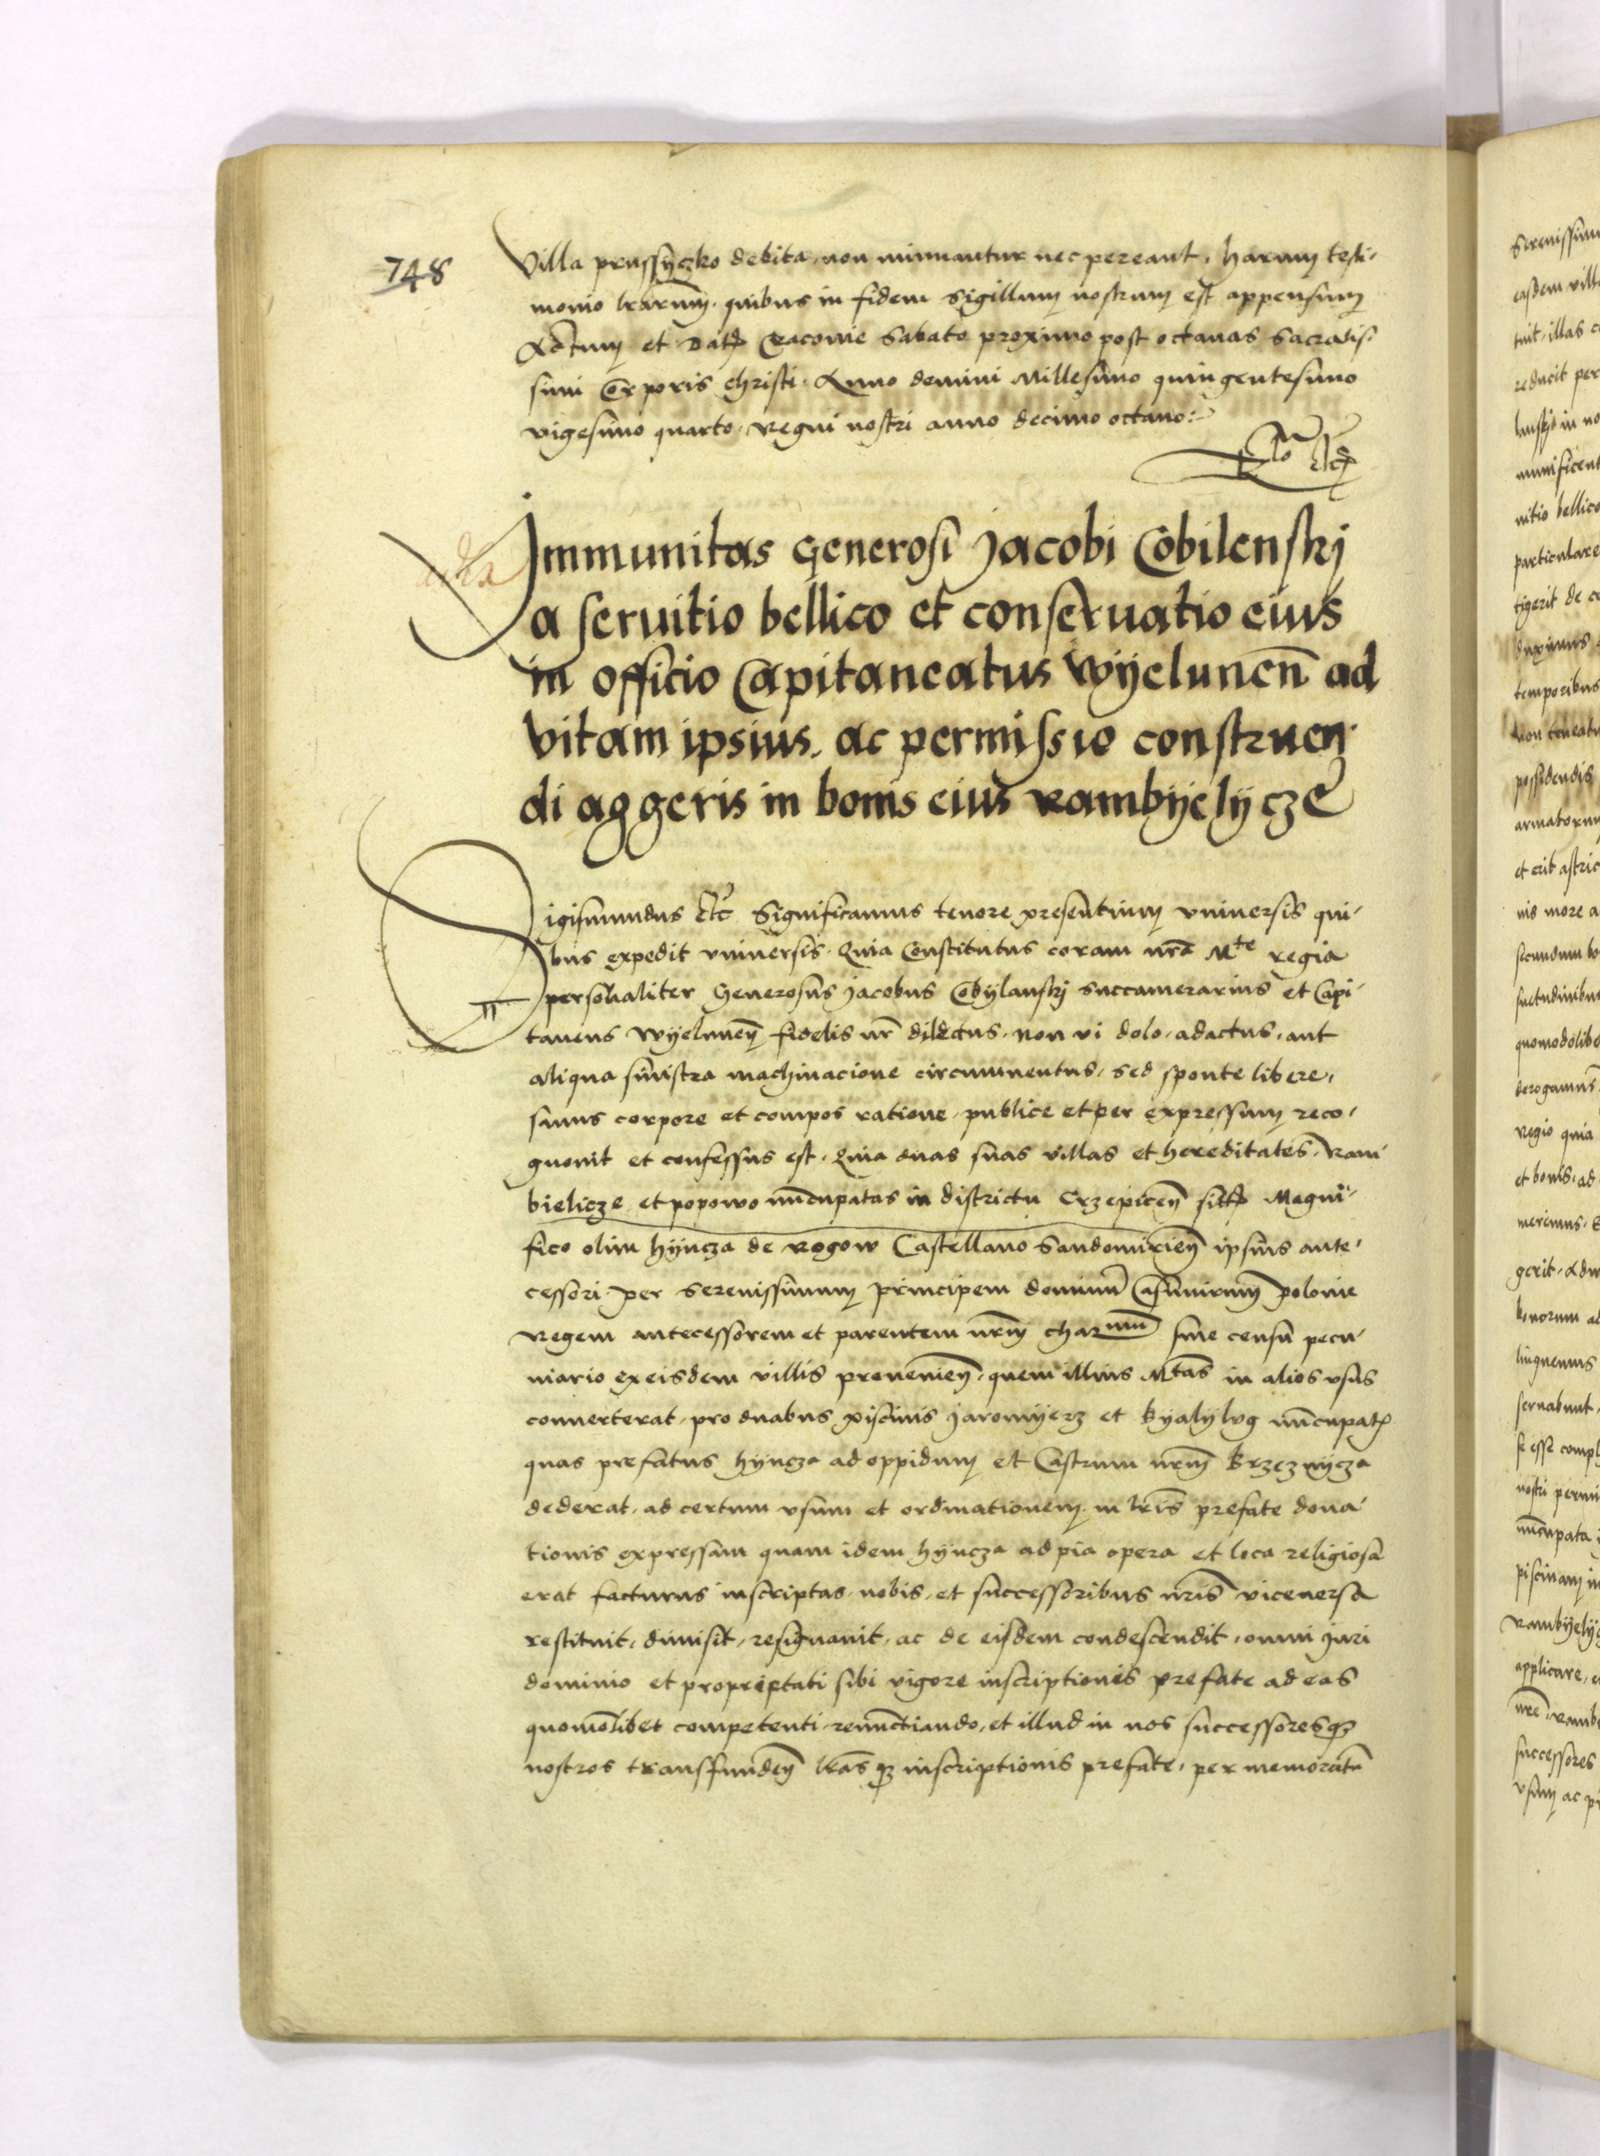 748
Villa prussyczko debita, non minuantur nec pereant, harum testi-
monio lrarum, quibus in fidem Sigillum nostrum est appensum
Actum et Dat Cracovie Sabato proximo post octavas Sacratis-
simi Corporis Christi. Anno domini Millesimo quingentesimo
vigesimo quarto, Regni nostri anno decimo octavo:-
Immunitas Generosi Jacobi Cobilenskj
a servitio bellico et conservatio eius
in officio Capitaneatus Wyelunen ad
vitam ipsius, ac permissio construen-
di aggeris in bonis eius Rambyelycze
Sigismundus Etc Significamus tenore presentium universis qui-
bus expedit universis. Quia Constitutus coram nra Mte regia
personaliter Generosus Jacobus Cobylanskj succamerarius et Capi-
taneus Wyelunen fidelis nr dilectus, non vi dolo, adactus, aut
aliqua sinistra machinacione circumventus, sed sponte libere,
sanus corpore et compos ratione, publice et per expressum reco-
gnovit et confessus est, Quia duas suas villas et hereditates, Ram
bielicze et popowo nuncupatas in districtu Crzepicen sit Magni-
fico olim hyncza de Rogow Castellano Sandomirien ipsius ante-
cessori per Serenissimum principem dominum Casimirum polonie
Regem antecessorem et parentem nrm charmum sine censu pecu-
niario ex eisdem villis provenien, quem illius Mtas in alios usus
converterat, pro duabus piscinis Jaromyerz et Byalylvg nuncupat
quas prefatus hyncza ad oppidum et Castrum nrm Brzeznycza
dederat, ad certum usum et ordinationem in lris prefate dona-
tionis expressam quam idem hyncza ad pia opera et loca religiosa
erat facturus inscriptas, nobis, et successoribus nris viceversa
restituit, dimisit, resignavit, ac de eisdem condescendit, omni juri
dominio et proprietati sibi vigore inscriptionis prefate ad eas
quomolibet competenti renunctiando, et illud in nos successoresque
nostros transfunden lrasque inscriptionis prefate, per memorata